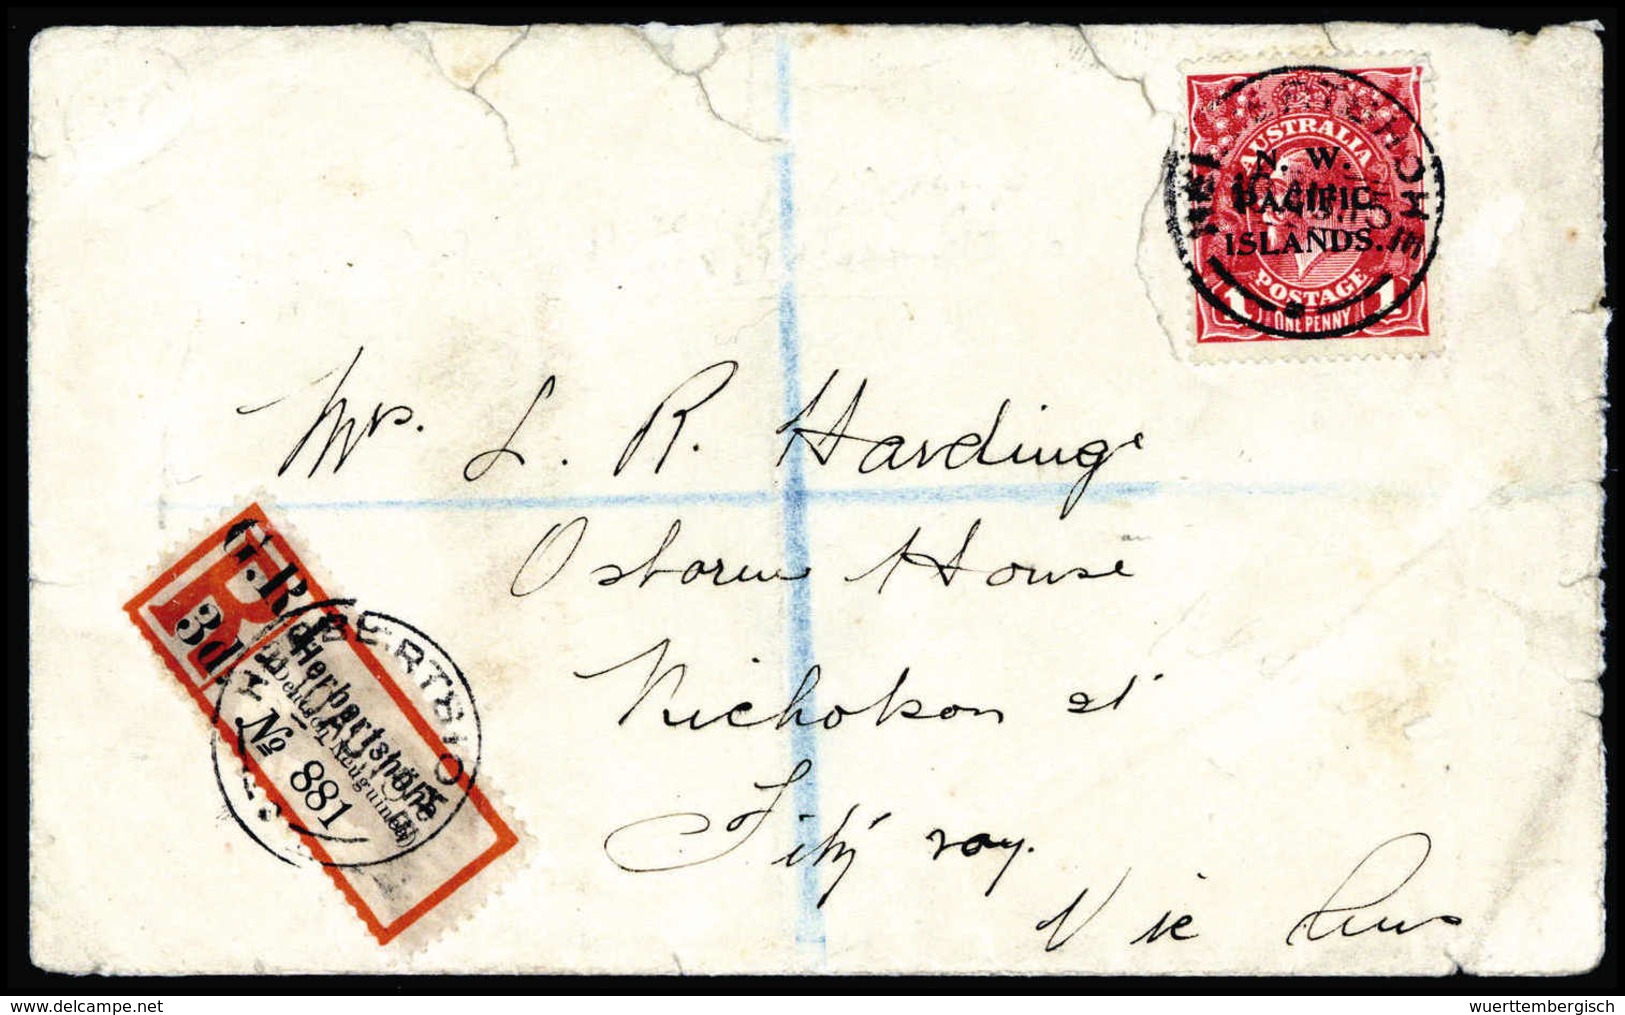 AUSTRALIA
N. W.
PACIFIC
ISLANDS.
POSTAGE
1 1
ONE PENNY
Mr. L. R. Harding
Osborne House
Nicholson st
Fitzroy.
Vic
G.R.
3d.
R
Herbertshöhe
(Deutsch Neuguinea)
№ 881
delcampe.net
wuerttembergisch